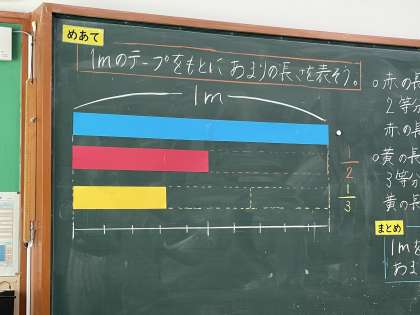 めあて
1mのテープをもとにあまりの長さを表そう。
1m
1/2
1/3
○赤の長
2等分
赤の長
○黄の長
3等分
黄の長
まとめ
1mを
あま